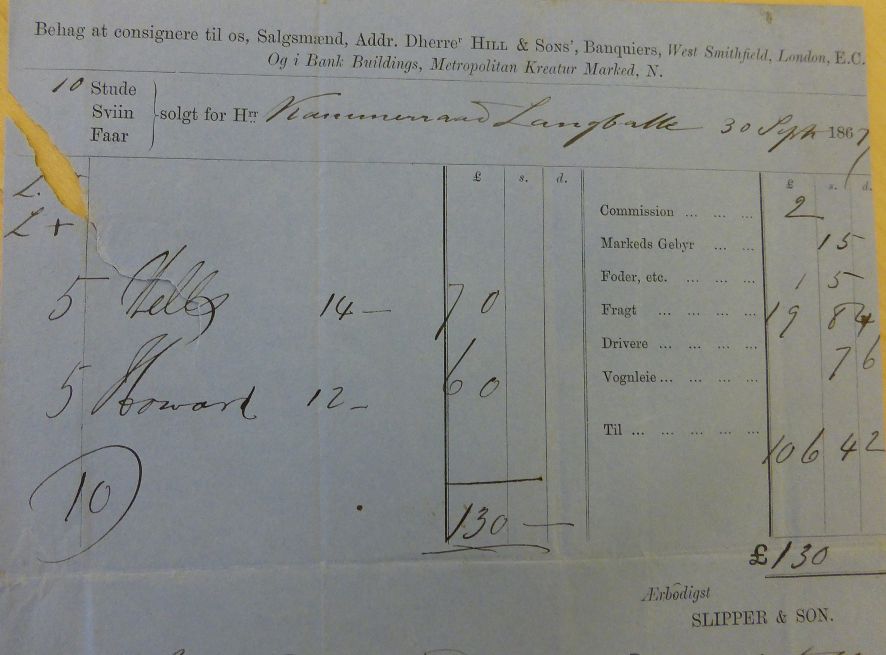 Behag at consignere til os, Salgsmænd, Addr. Dherrer HILL & SONS', Banquiers, West Smithfield, London, E.C.
Og i Bank Buildings, Metropolitan Kreatur Marked, N.
10 Stude
Sviin
Faar
solgt for Hrr Kammerraad Langballe 30 Sept 1867
£ s. d.
£ s. d.
L
L +
Commission ... ... ... 2
Markeds Gebyr ... ... 15
Foder, etc. ... ... ... 1 5
5 Wells 14 – 70
Fragt ... ... ... ... 19 8 4
Drivere ... ... ... ... 7 6
Vognleie ... ... ... ...
5 Howard 12 – 60
Til ... ... ... ... ... 106 4 2
10
130 —
£130
Ærbödigst
SLIPPER & SON.